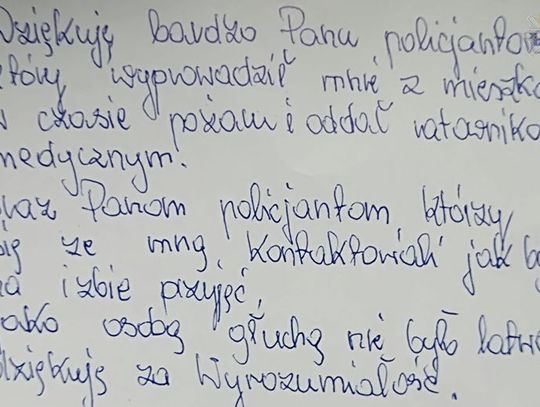 Dziękuję bardzo Panu policjantow
który wyprowadził mnie z mieszka
w czasie pożaru i oddał ratowniko
medycznym.
oraz Panom policjantom, którzy
się ze mną kontaktowali jak by
na izbie przyjęć,
Jako osobą głuchą nie było łatwo
dziękuję za Wyrozumiałość.